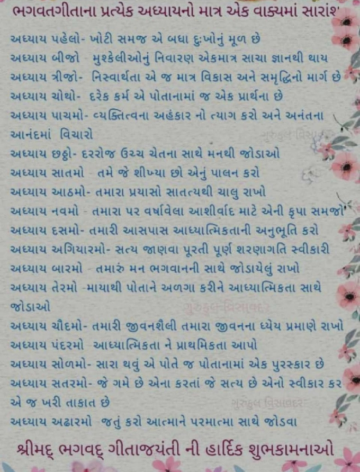 ભગવતગીતાના પ્રત્યેક અધ્યાયનો માત્ર એક વાક્યમાં સારાંશ
અધ્યાય પહેલો- ખોટી સમજ એ બધા દુઃખોનું મૂળ છે
અધ્યાય બીજો - મુશ્કેલીઓનું નિવારણ એકમાત્ર સાચા જ્ઞાનથી થાય
અધ્યાય ત્રીજો- નિસ્વાર્થતા એ જ માત્ર વિકાસ અને સમૃદ્ધિનો માર્ગ છે
અધ્યાય ચોથો- દરેક કર્મ એ પોતાનામાં જ એક પ્રાર્થના છે
અધ્યાય પાચમો- વ્યક્તિત્વના અહંકાર નો ત્યાગ કરો અને અનંતના
આનંદમાં વિચારો
અધ્યાય છઠ્ઠો- દરરોજ ઉચ્ચ ચેતના સાથે મનથી જોડાઓ
અધ્યાય સાતમો - તમે જે શીખ્યા છો એનું પાલન કરો
અધ્યાય આઠમો- તમારા પ્રયાસો સાતત્યથી ચાલુ રાખો
અધ્યાય નવમો - તમારા પર વર્ષાવેલા આશીર્વાદ માટે એની કૃપા સમજો
અધ્યાય દસમો- તમારી આસપાસ આધ્યાત્મિકતાની અનુભૂતિ કરો
અધ્યાય અગિયારમો- સત્ય જાણવા પૂરતી પૂર્ણ શરણાગતિ સ્વીકારી
અધ્યાય બારમો - તમારું મન ભગવાનની સાથે જોડાયેલું રાખો
અધ્યાય તેરમો -માયાથી પોતાને અળગા કરીને આધ્યાત્મિકતા સાથે
જોડાઓ
અધ્યાય ચૌદમો- તમારી જીવનશૈલી તમારા જીવનના ધ્યેય પ્રમાણે રાખો
અધ્યાય પંદરમો આધ્યાત્મિકતા ને પ્રાથમિકતા આપો
અધ્યાય સોળમો- સારા થવું એ પોતે જ પોતાનામાં એક પુરસ્કાર છે
અધ્યાય સતરમો- જે ગમે છે એના કરતાં જે સત્ય છે એનો સ્વીકાર કર
એ જ ખરી તાકાત છે
અધ્યાય અઢારમો જતું કરો આત્માને પરમાત્મા સાથે જોડવા
શ્રીમદ્ ભગવદ્ ગીતાજયંતી ની હાર્દિક શુભકામનાઓ